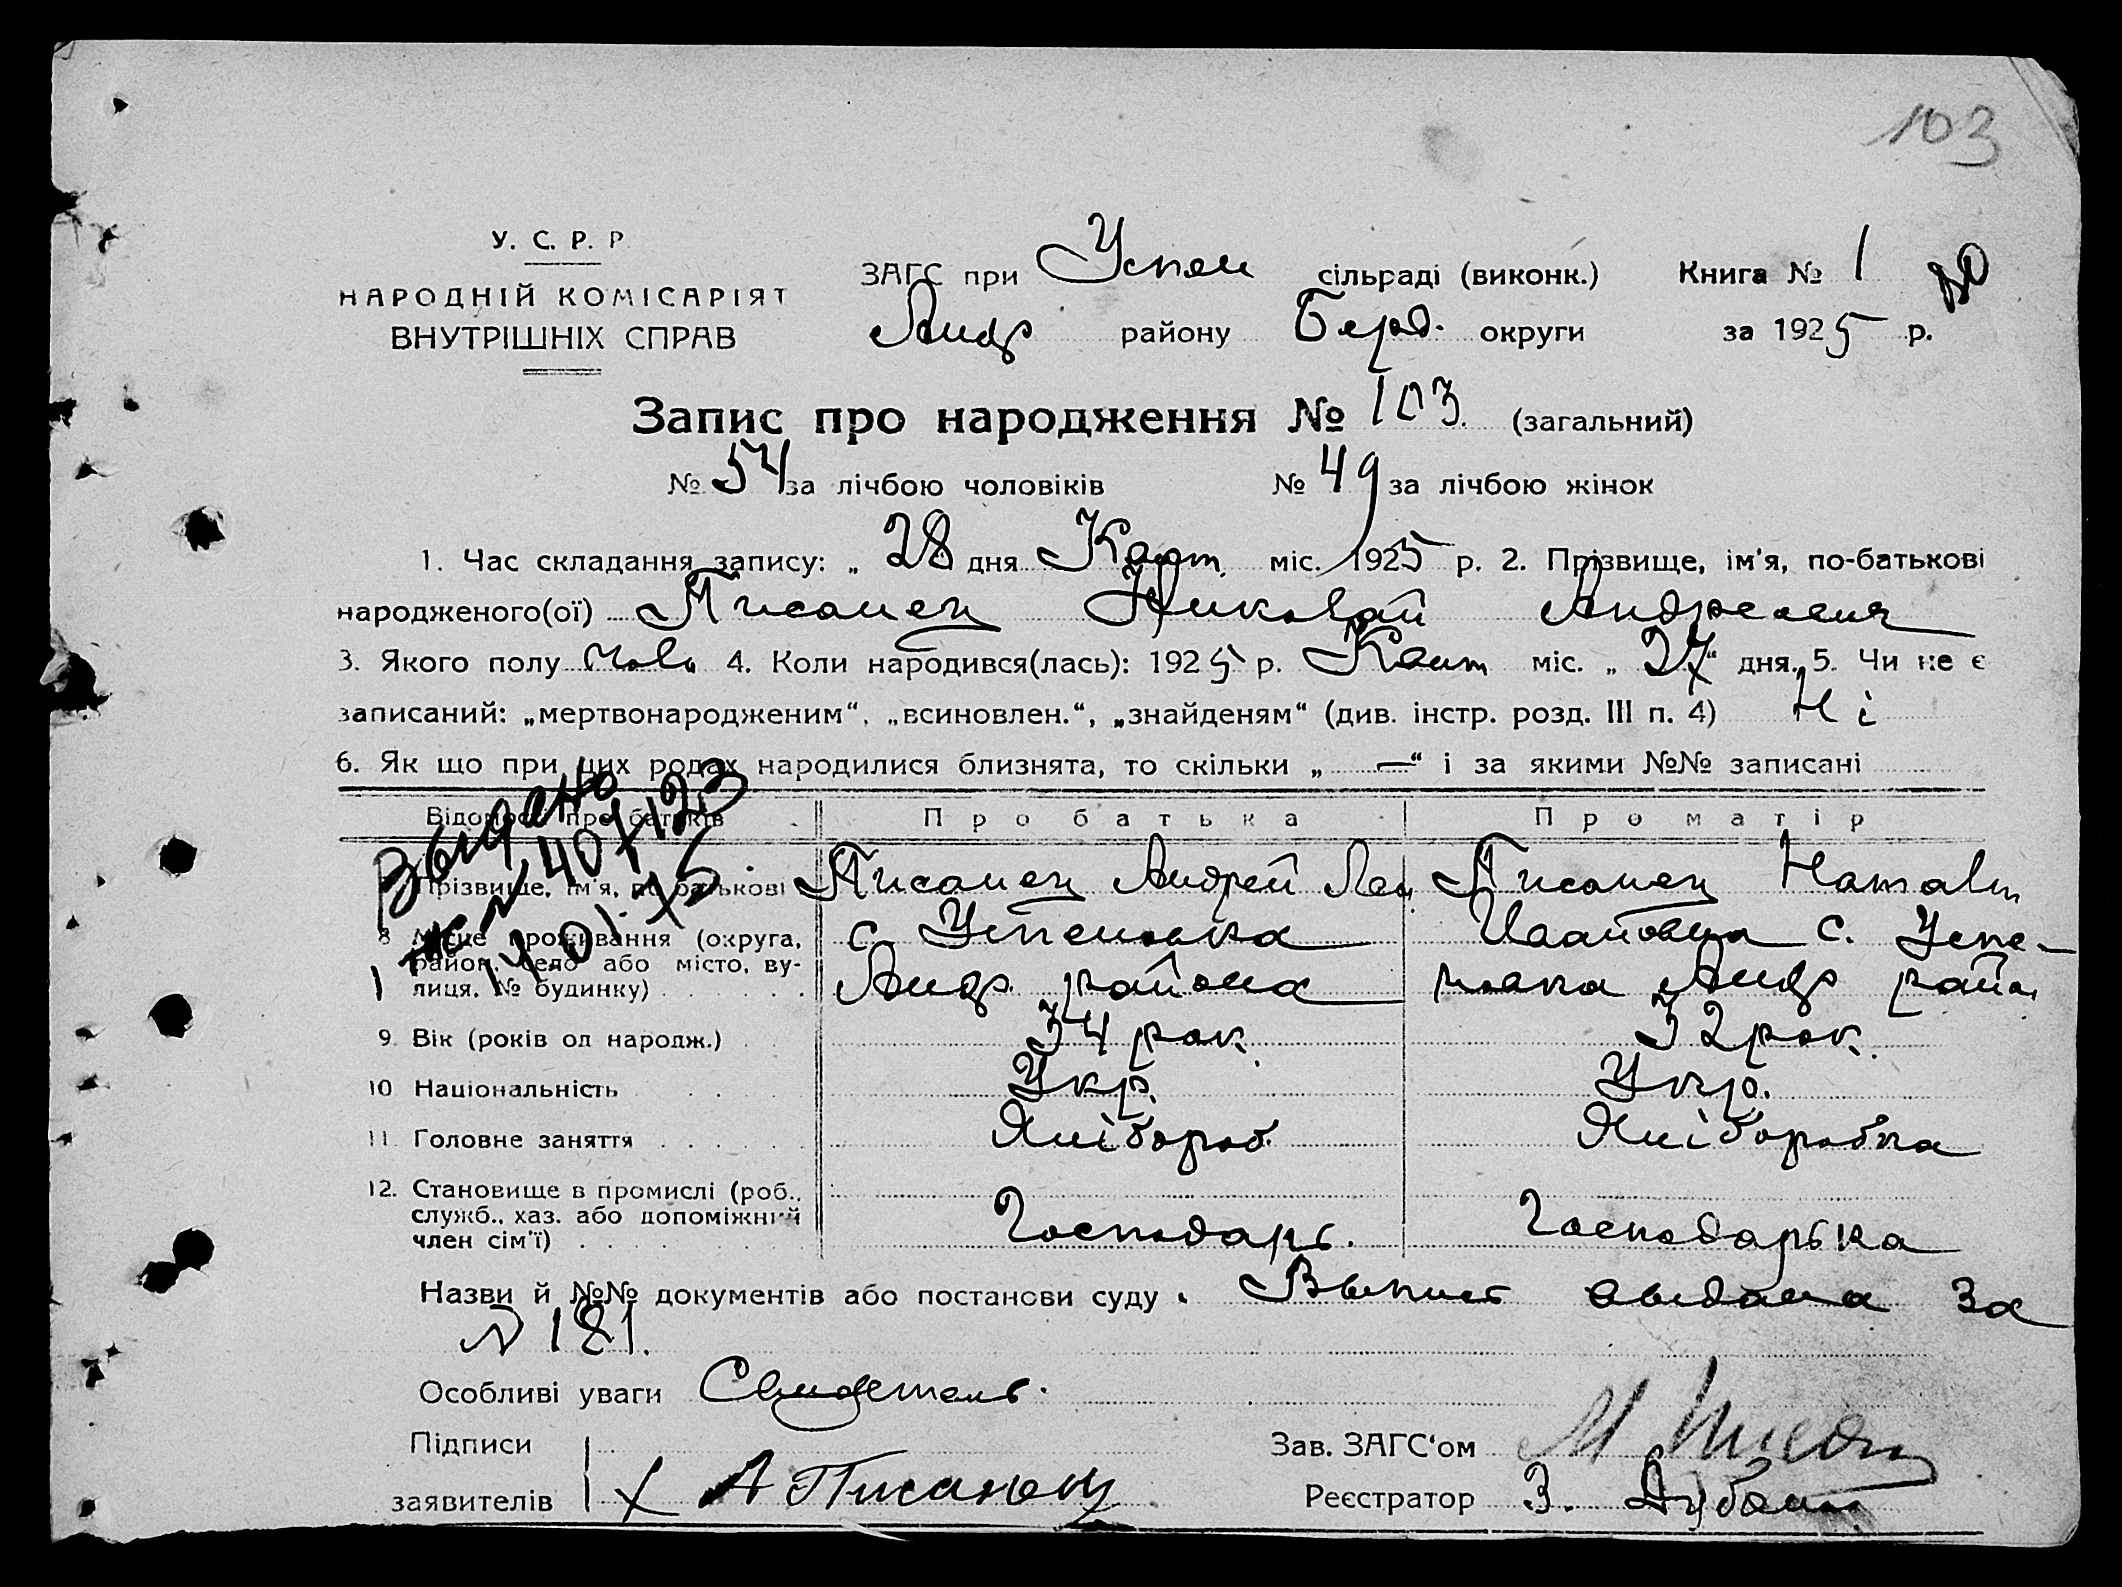 103
У. С. Р. Р.
НАРОДНІЙ КОМІСАРІЯТ
ВНУТРІШНІХ СПРАВ
ЗАГС при Успен сільраді (виконк.) Книга № 1
Андр району Берд. округи за 1925 р.
Запис про народження № 103. (загальний)
№ 54 за лічбою чоловіків № 49 за лічбою жінок
1. Час складання запису: „ 28 дня міс. 1925 р. 2. Прізвище, ім'я, по-батькові
народженого(ої) Писанец Николай Андреевич
3. Якого полу Чолв 4. Коли народився(лась): 1925 р. міс. „ 27“ дня. 5. Чи не є
записаний: „мертвонародженим“, „всиновлен.“, „знайденям“ (див. інстр. розд. III п. 4) Ні
6. Як що при цих родах народилися близнята, то скільки „ —“ і за якими №№ записані
Відомості про батьків Про батька Про матір
Выдено
Прізвище, ім'я, по батькові Писанец Андрей Писанец Натал
8 Місце проживання (округа, с Успеновка Ивановна с. Успе-
район, село або місто, ву- Андр. района новка Андр район
лиця, № будинку)
9. Вік (років од народж.) 34 рок. 32 рок.
10 Національність Укр. Укр.
11. Головне заняття Хлібороб. Хліборобка
12. Становище в промислі (роб.,
служб., хаз. або допоміжний
член сім'ї) Господарь. Господарька
Назви й №№ документів або постанови суду. Выпись выдана за
№ 181.
Особливі уваги Свидетель.
Підписи
заявителів А Писанец
Зав. ЗАГС'ом
Реєстратор З.